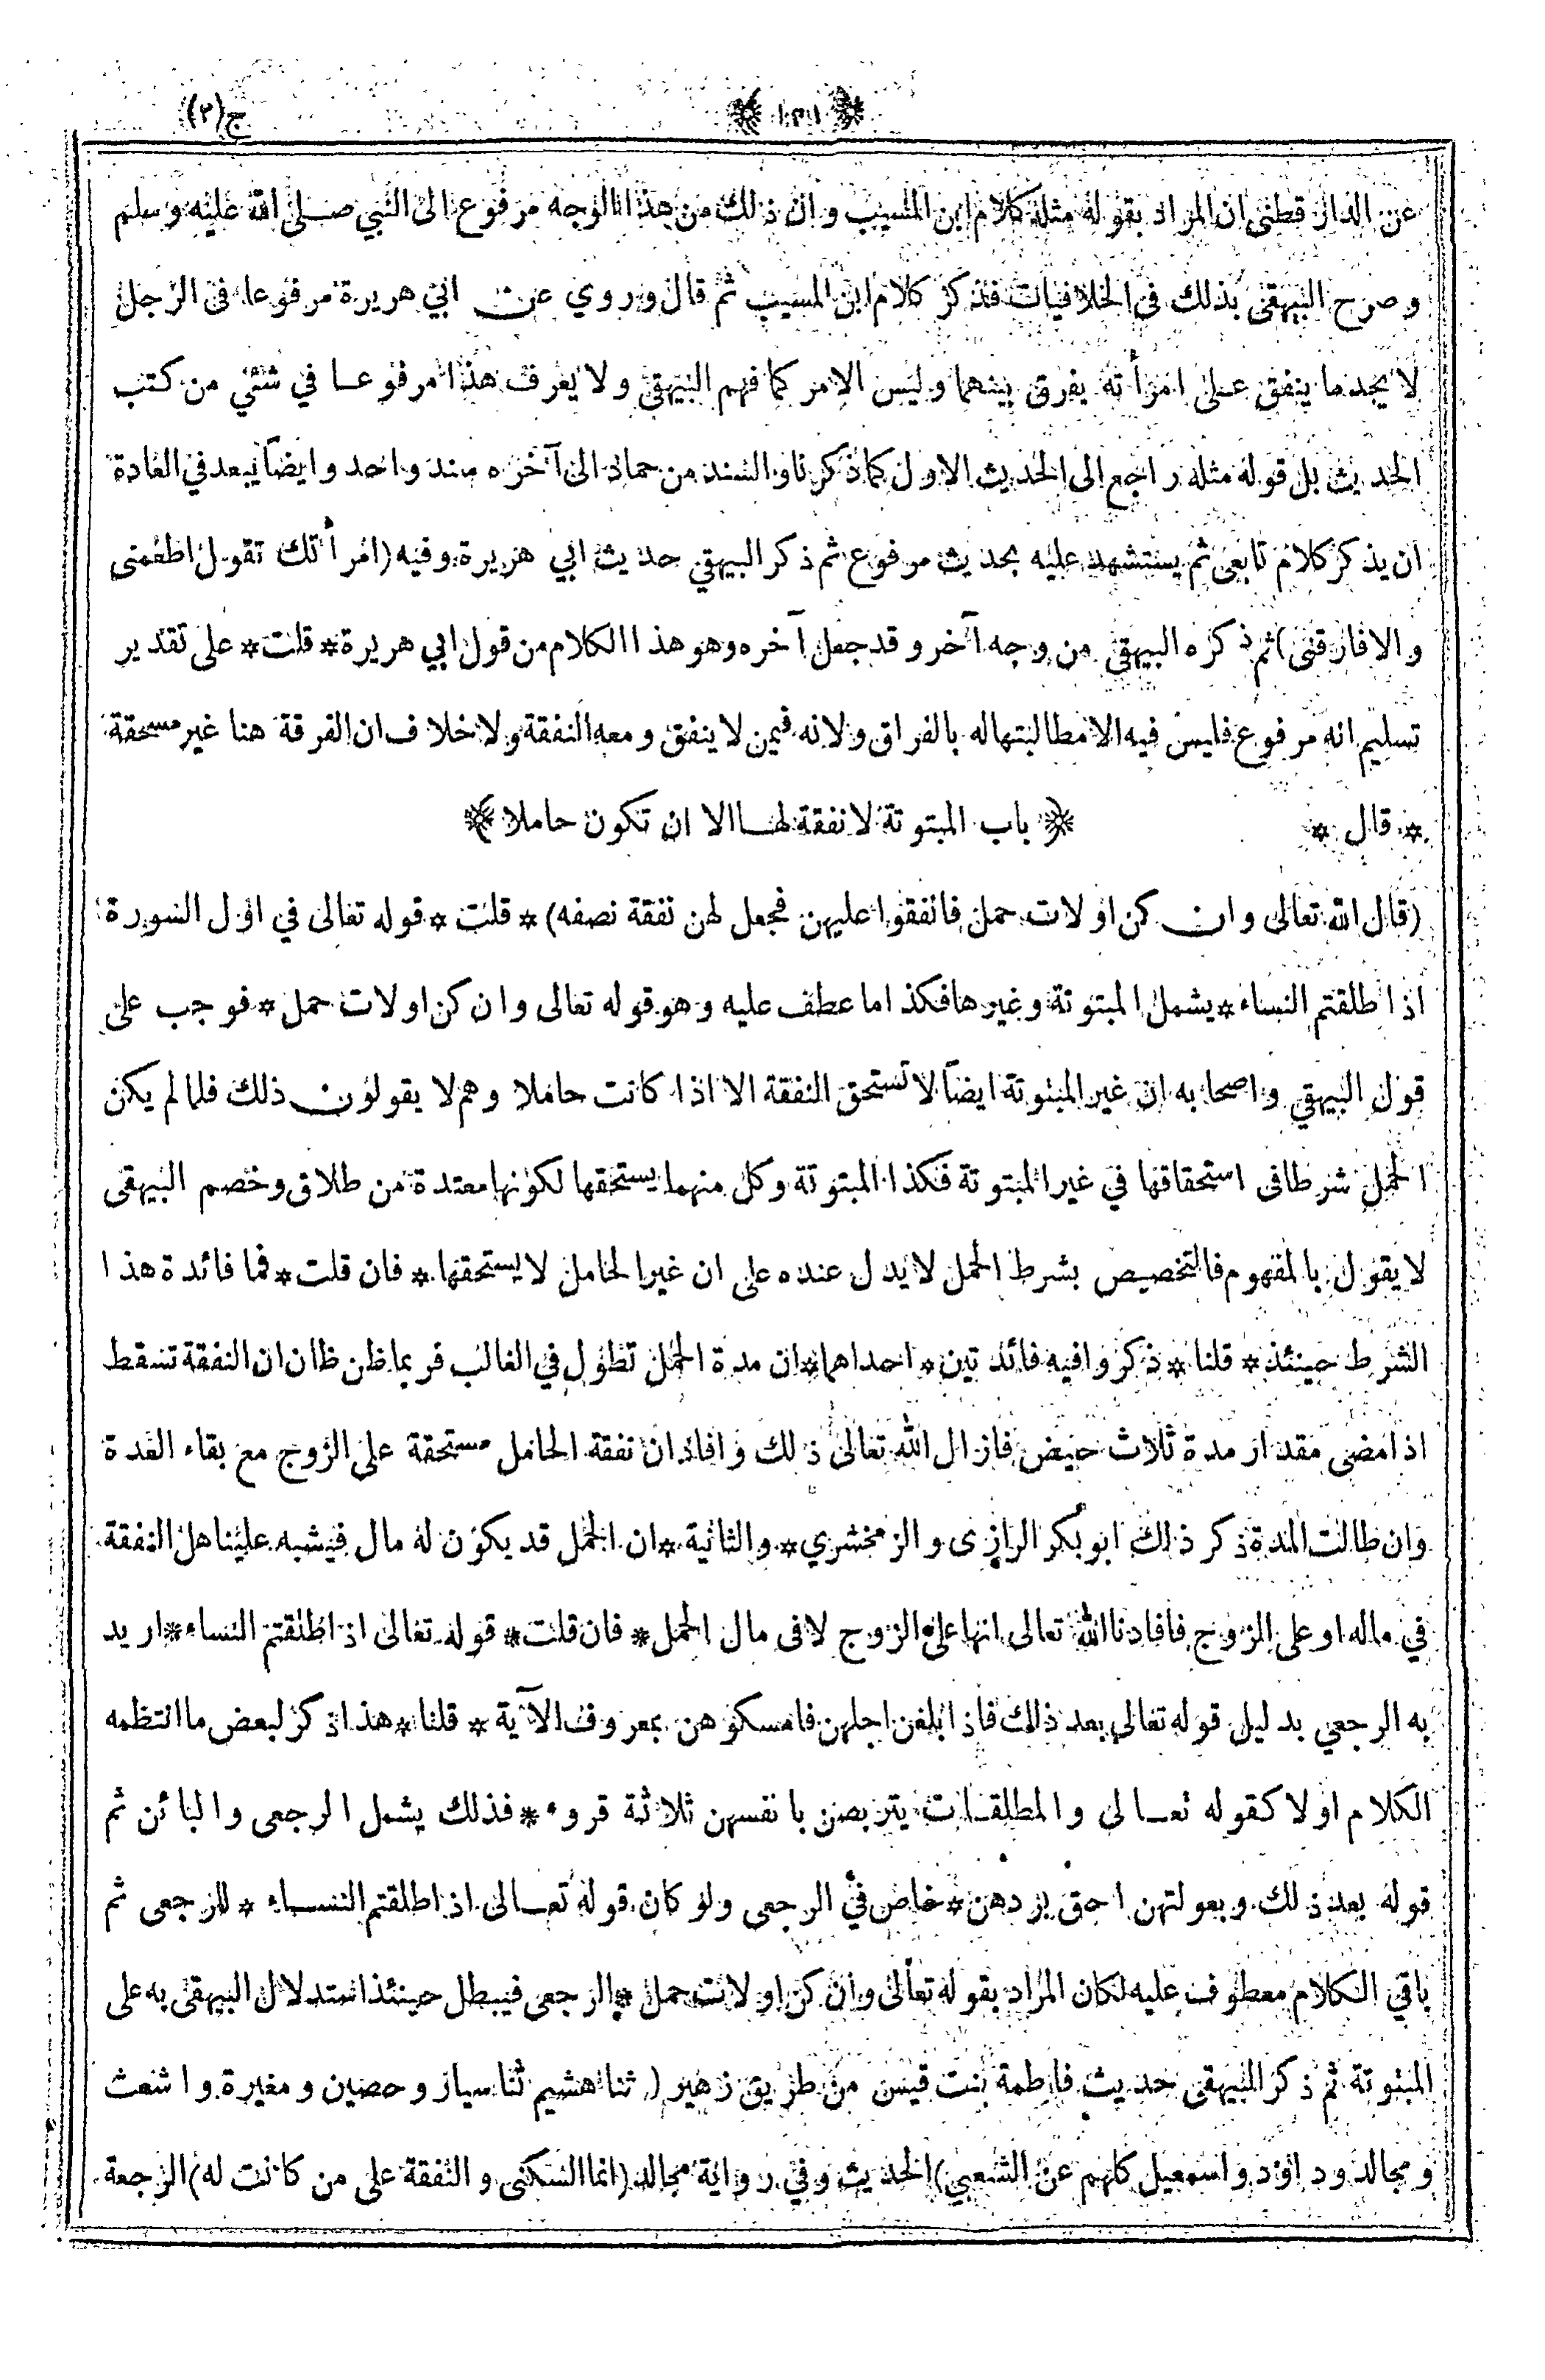 ج(٢)
عن الدار قطنى ان المراد بقوله مثله كلام ابن المسيب وان ذلك من هذا الوجه مرفوع الى النبي صلى الله عليه وسلم
وصرح البيهقى بذلك فى الخلافيات فذكر كلام ابن المسيب ثم قال وروي عن ابي هريرة مرفوعا فى الرجل
لا يجد ما ينفق على امرأته يفرق بينهما وليس الامر كما فهم البيهقى ولا يعرف هذا مرفوعا في شئي من كتب
الحديث بل قوله مثله راجع الى الحديث الاول كما ذكرنا والسند من حماد الى آخره سند واحد وايضاً يبعد في العادة
ان يذكر كلام تابعى ثم يستشهد عليه بحديث مرفوع ثم ذكر البيهقي حديث ابي هريرة وفيه (امرأتك تقول اطعمنى
والا فارقنى) ثم ذكره البيهقى من وجه آخر وقد جعل آخره وهو هذا الكلام من قول ابي هريرة * قلت * على تقدير
تسليم انه مرفوع فليس فيه الا مطالبتها له بالفراق ولانه فيمن لا ينفق ومعه النفقة ولا خلاف ان الفرقة هنا غير مستحقة
* قال * ﴿ باب المبتوتة لا نفقة لها الا ان تكون حاملا ﴾
(قال الله تعالى وان كن اولات حمل فانفقوا عليهن فجعل لهن نفقة نصفه) * قلت * قوله تعالى في اول السورة
اذا طلقتم النساء * يشمل المبتوتة وغيرها فكذا ما عطف عليه وهو قوله تعالى وان كن اولات حمل * فوجب على
قول البيهقي واصحابه ان غير المبتوتة ايضاً لا تستحق النفقة الا اذا كانت حاملا وهم لا يقولون ذلك فلما لم يكن
الحمل شرطا فى استحقاقها في غير المبتوتة فكذا المبتوتة وكل منهما يستحقها لكونها معتدة من طلاق وخصم البيهقى
لا يقول بالمفهوم فالتخصيص بشرط الحمل لا يدل عنده على ان غير الحامل لا يستحقها * فان قلت * فما فائدة هذا
الشرط حينئذ * قلنا * ذكروا فيه فائدتين * احداهما * ان مدة الحمل تطول في الغالب فربما ظن ظان ان النفقة تسقط
اذا مضى مقدار مدة ثلاث حيض فازال الله تعالى ذلك وافاد ان نفقة الحامل مستحقة على الزوج مع بقاء العدة
وان طالت المدة ذكر ذلك ابو بكر الرازى والزمخشري * والثانية * ان الحمل قد يكون له مال فيشبه علينا هل النفقة
في ماله او على الزوج فافادنا الله تعالى انها على الزوج لا فى مال الحمل * فان قلت * قوله تعالى اذا طلقتم النساء * اريد
به الرجعي بدليل قوله تعالى بعد ذلك فاذا بلغن اجلهن فامسكوهن بمعروف الآية * قلنا * هذا ذكر لبعض ما انتظمه
الكلام اولا كقوله تعالى والمطلقات يتربصن بانفسهن ثلاثة قروء * فذلك يشمل الرجعى والبائن ثم
قوله بعد ذلك وبعولتهن احق بردهن * خاص في الرجعى ولو كان قوله تعالى اذا طلقتم النساء * للرجعى ثم
باقي الكلام معطوف عليه لكان المراد بقوله تعالى وان كن اولات حمل * الرجعى فيبطل حينئذ استدلال البيهقى به على
المبتوتة ثم ذكر البيهقى حديث فاطمة بنت قيس من طريق زهير (ثنا هشيم ثنا سيار وحصين ومغيرة واشعث
ومجالد وداؤد واسمعيل كلهم عن الشعبي) الحديث وفي رواية مجالد (انما السكنى والنفقة على من كانت له) الرجعة